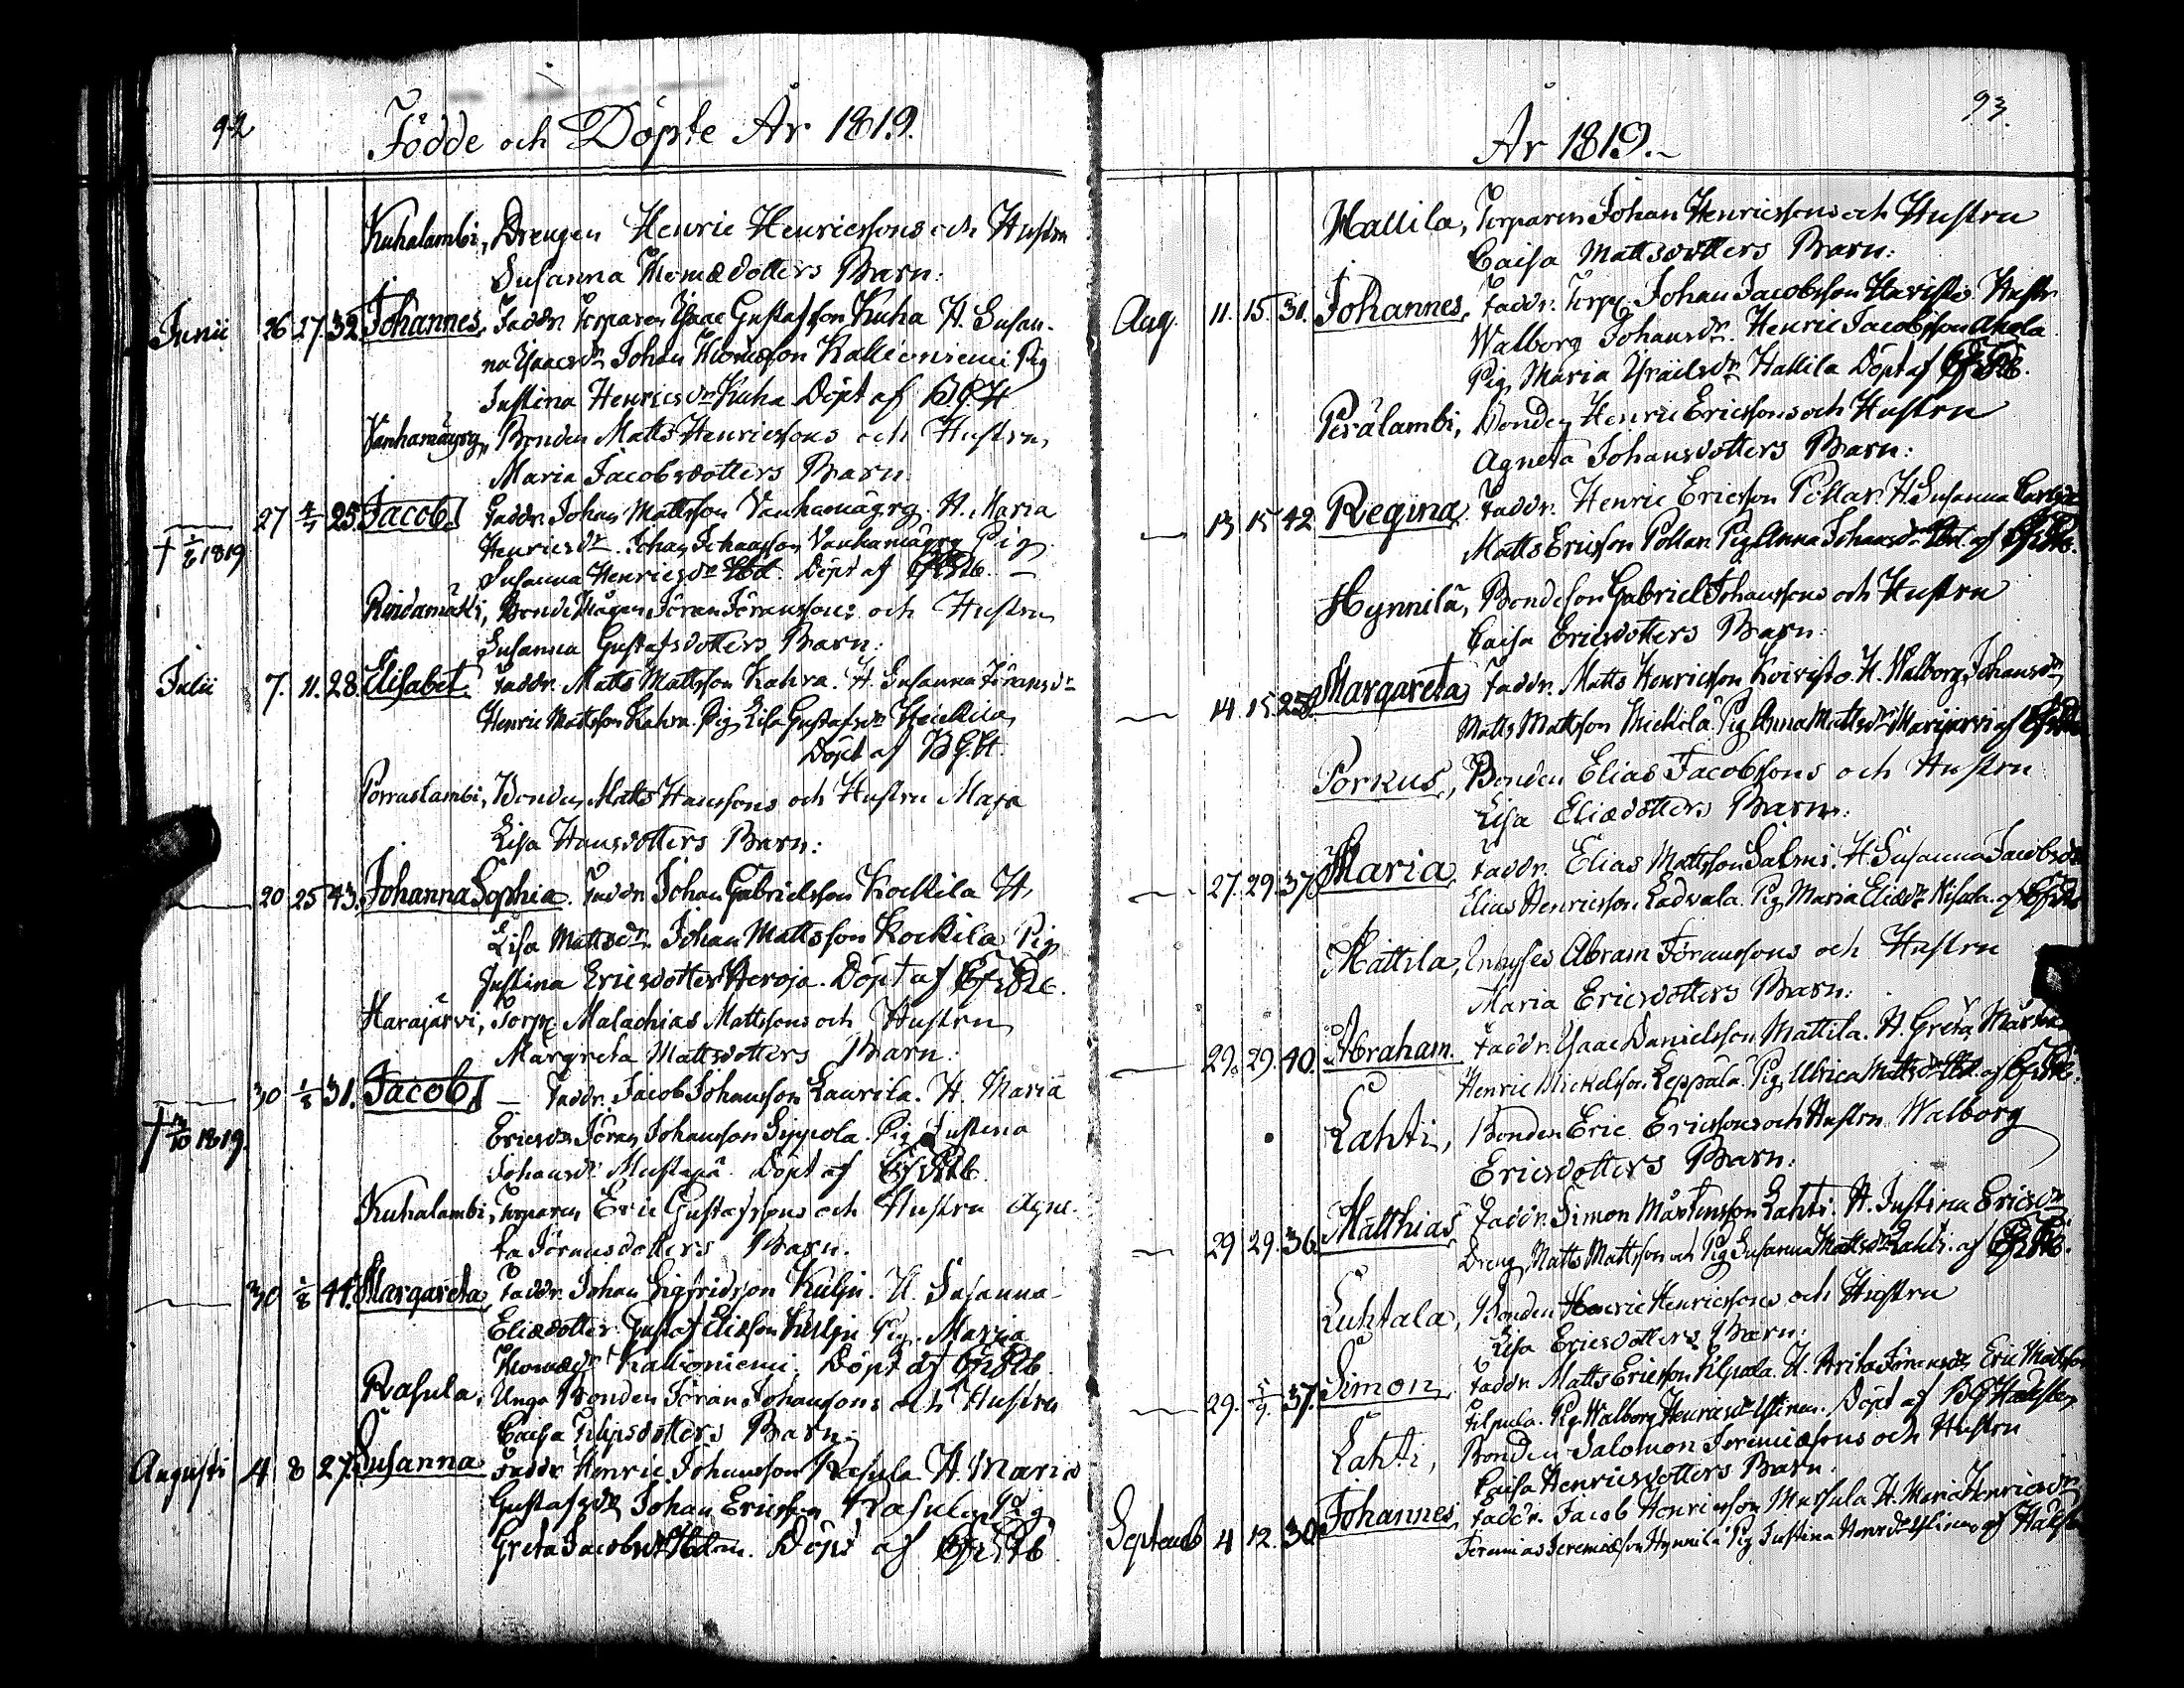 92
Födde och Döpte År 1819.
Kuhalambi, Drengen Henric Henricssons och Hustru
Susanna Thomædotters Barn:
Junii 26 27. 32. Johannes, Faddr. Torparen Isaac Gustafsson Kuha H. Susan-
na Isaacsdr. Johan Thomæsson Kallioniemi Pig
Justina Henricsdr Kuha Döpt af
Vanhamäyry, Bonden Matts Henricssons och Hustru
Maria Jacobsdotters Barn
27 4/7 25 Jacob Faddr. Johan Mattsson Vanhamäyry. H. Maria
† 1819
Henricsdr. Johan Johansson Vanhamäyry Pig
Susanna Henricsdr Döpt af
Rindamäki, Bonde Mågen Jöran Jöranssons och Hustru
Susanna Gustafsdotters Barn:
Julii 7. 11. 28. Elisabet. Faddr. Matts Mattsson Kahra. H. Susanna Jöransdr
Henric Mattsson Kahra. Pig Lisa Gustafsdr Heickila
Döpt af
Porraslambi, Bonden Matts Hanssons och Hustru Maja
Lisa Hansdotters Barn:
20 25 43. Johanna Sophia. Faddr. Johan Gabrielsson Kockila H.
Lisa Mattsdr. Johan Mattsson Kockila Pig
Justina Ericsdotter Heroja. Döpt af
Harajärvi, Torp. Malachias Mattssons och Hustru
Margreta Mattsdotters Barn:
30 1/8 31. Jacob — Faddr. Jacob Johansson Laurila. H. Maria
† 1819.
Ericsdr Jöran Johansson Sypola. Pig Justina
Johansdr. Mustapä Döpt af
Kuhalambi, Torparen Eric Gustafssons och Hustru Agne-
ta Jöransdotters Barn.
30 1/8 44. Margareta, Faddr. Johan Sigfridsson Kulju. H. Susanna
Eliædotter. Gustaf Eliæsson Kulju Pig. Maria
Thomædr Kallioniemi. Döpt af
Rasula, Unga Bonden Jöran Johanssons och Hustru
Caisa Filipsdotters Barn:
Augusti 4 8 27. Susanna Faddr Henric Johansson Rasula H. Maria
Gustafsdr Johan Ericsson Rasula Pig
Greta Jacobsdr Döpt af
93.
År 1819.
Hallila, Torparen Johan Henricssons och Hustru
Caisa Mattsdotters Barn:
Aug. 11. 15. 31. Johannes, Faddr. Torp. Johan Jacobsson Haristo Hustr
Walborg Johansdr. Henric Jacobsson Akola
Pig Maria Israilsdr Hallila Döpt af
Perälambi, Bonden Henric Ericssons och Hustru
Agneta Johansdotters Barn:
13 15 42 Regina Faddr. Henric Ericsson Pollar. H. Susanna
Matts Ericsson Pollar. Pig Anna Johansdr af
Hynnilä, Bondeson Gabriel Johanssons och Hustru
Caisa Ericsdotters Barn:
14. 15. Margareta Faddr. Matts Henricsson Koivisto. H. Walborg Johansdr
Matts Mattsson Mickilä Pig Anna Mattsdr Marijärvi af
Porkus, Bonden Elias Jacobssons och Hustru
Lisa Eliædotters Barn:
27. 29. 37 Maria, Faddr. Elias Mattsson Salmi. H. Susanna Jacobsdr
Elias Henricsson Ladvala. Pig Maria Eliædr Kisala. af
Mattila, Enhyses Abram Jöranssons och Hustru
Maria Ericsdotters Barn:
29. 29. 40. Abraham. Faddr. Isaac Danielsson Mattila. H. Greta
Henric Mickelsson Leppälä. Pig Ulrica Mattsdr af
Lahti, Bonden Eric Ericssons och Hustru Walborg
Ericsdotters Barn:
29 29. 36. Matthias, Faddr. Simon Mårtensson Lahti. H. Justina Ericsdr
Dreng Matts Mattsson och Pig Susanna Mattsdr Lahti. af
Luhtala, Bonden Henric Henricssons och Hustru
Lisa Ericsdotters Barn:
29. 5/9. 37. Simon, Faddr. Matts Ericsson Filpula. H. Brita Jöransdr Eric Mattsson
Filpula. Pig Walborg Döpt af
Lahti, Bonden Salomon Jeremiæsons och Hustru
Caisa Henricsdotters Barn:
Septemb 4 12. 30 Johannes, Faddr. Jacob Henricsson Massula H. Maria Henricsdr
Jeremias Jeremiæson Hynnilä Pig Justina af